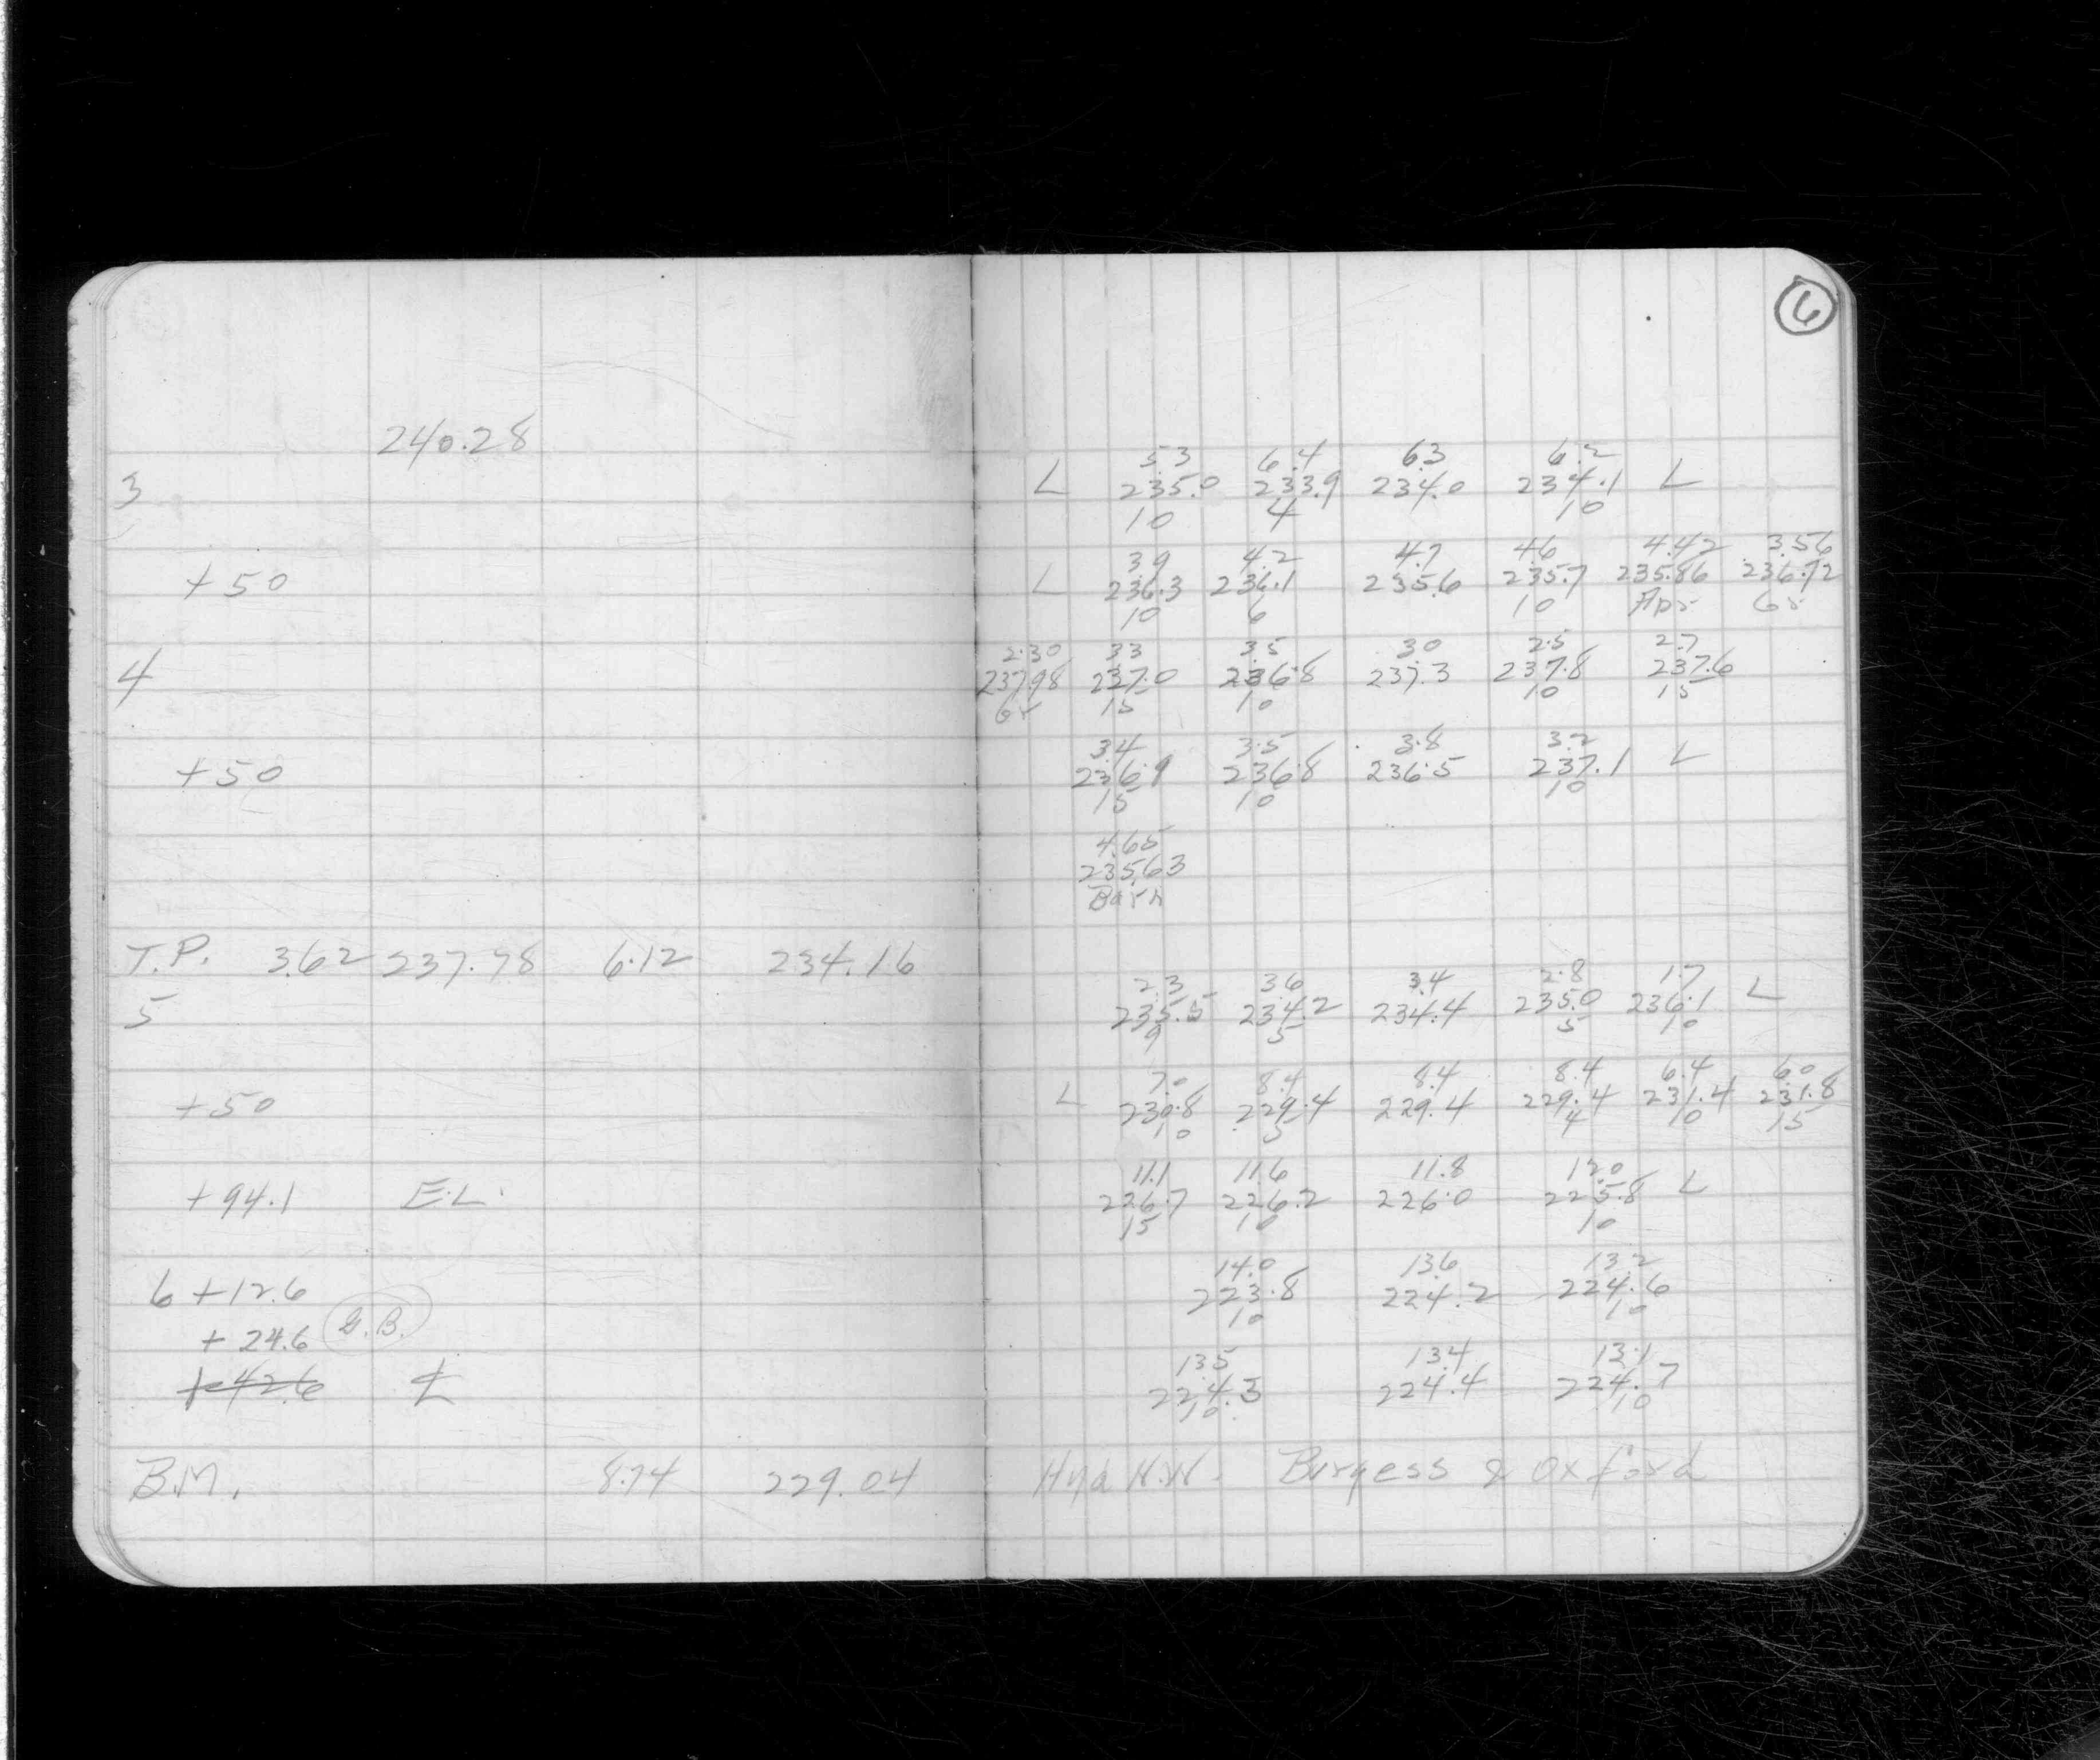 6
240.28
5.3 6.4 6.3 6.2
3 L 235.0 233.9 234.0 234.1 L
10 4 10
3.9 4.2 4.7 4.6 4.42 3.56
+50 L 236.3 236.1 235.6 235.7 235.86 236.72
10 6 10 Apr Gr
2.30 3.3 3.5 3.0 2.5 2.7
4 237.98 237.0 236.8 237.3 237.8 237.6
Gr 15 10 10 15
3.4 3.5 3.8 3.2
+50 236.9 236.8 236.5 237.1 L
15 10 10
4.65
235.63
Barn
T.P. 3.62 237.78 6.12 234.16
2.3 3.6 3.4 2.8 1.7
5 235.5 234.2 234.4 235.0 236.1 L
9 5 5 10
7.0 8.4 8.4 8.4 6.4 6.0
+50 L 230.8 229.4 229.4 229.4 231.4 231.8
10 5 4 10 15
11.1 11.6 11.8 12.0
+94.1 E.L. 226.7 226.2 226.0 225.8 L
15 10 10
14.0 13.6 13.2
6 +12.6 223.8 224.2 224.6
10 10
+24.6 G.B.
13.5 13.4 13.1
+42.6 ℄ 224.3 224.4 224.7
10 10
B.M. 8.74 229.04 Hyd N.W. Burgess & Oxford